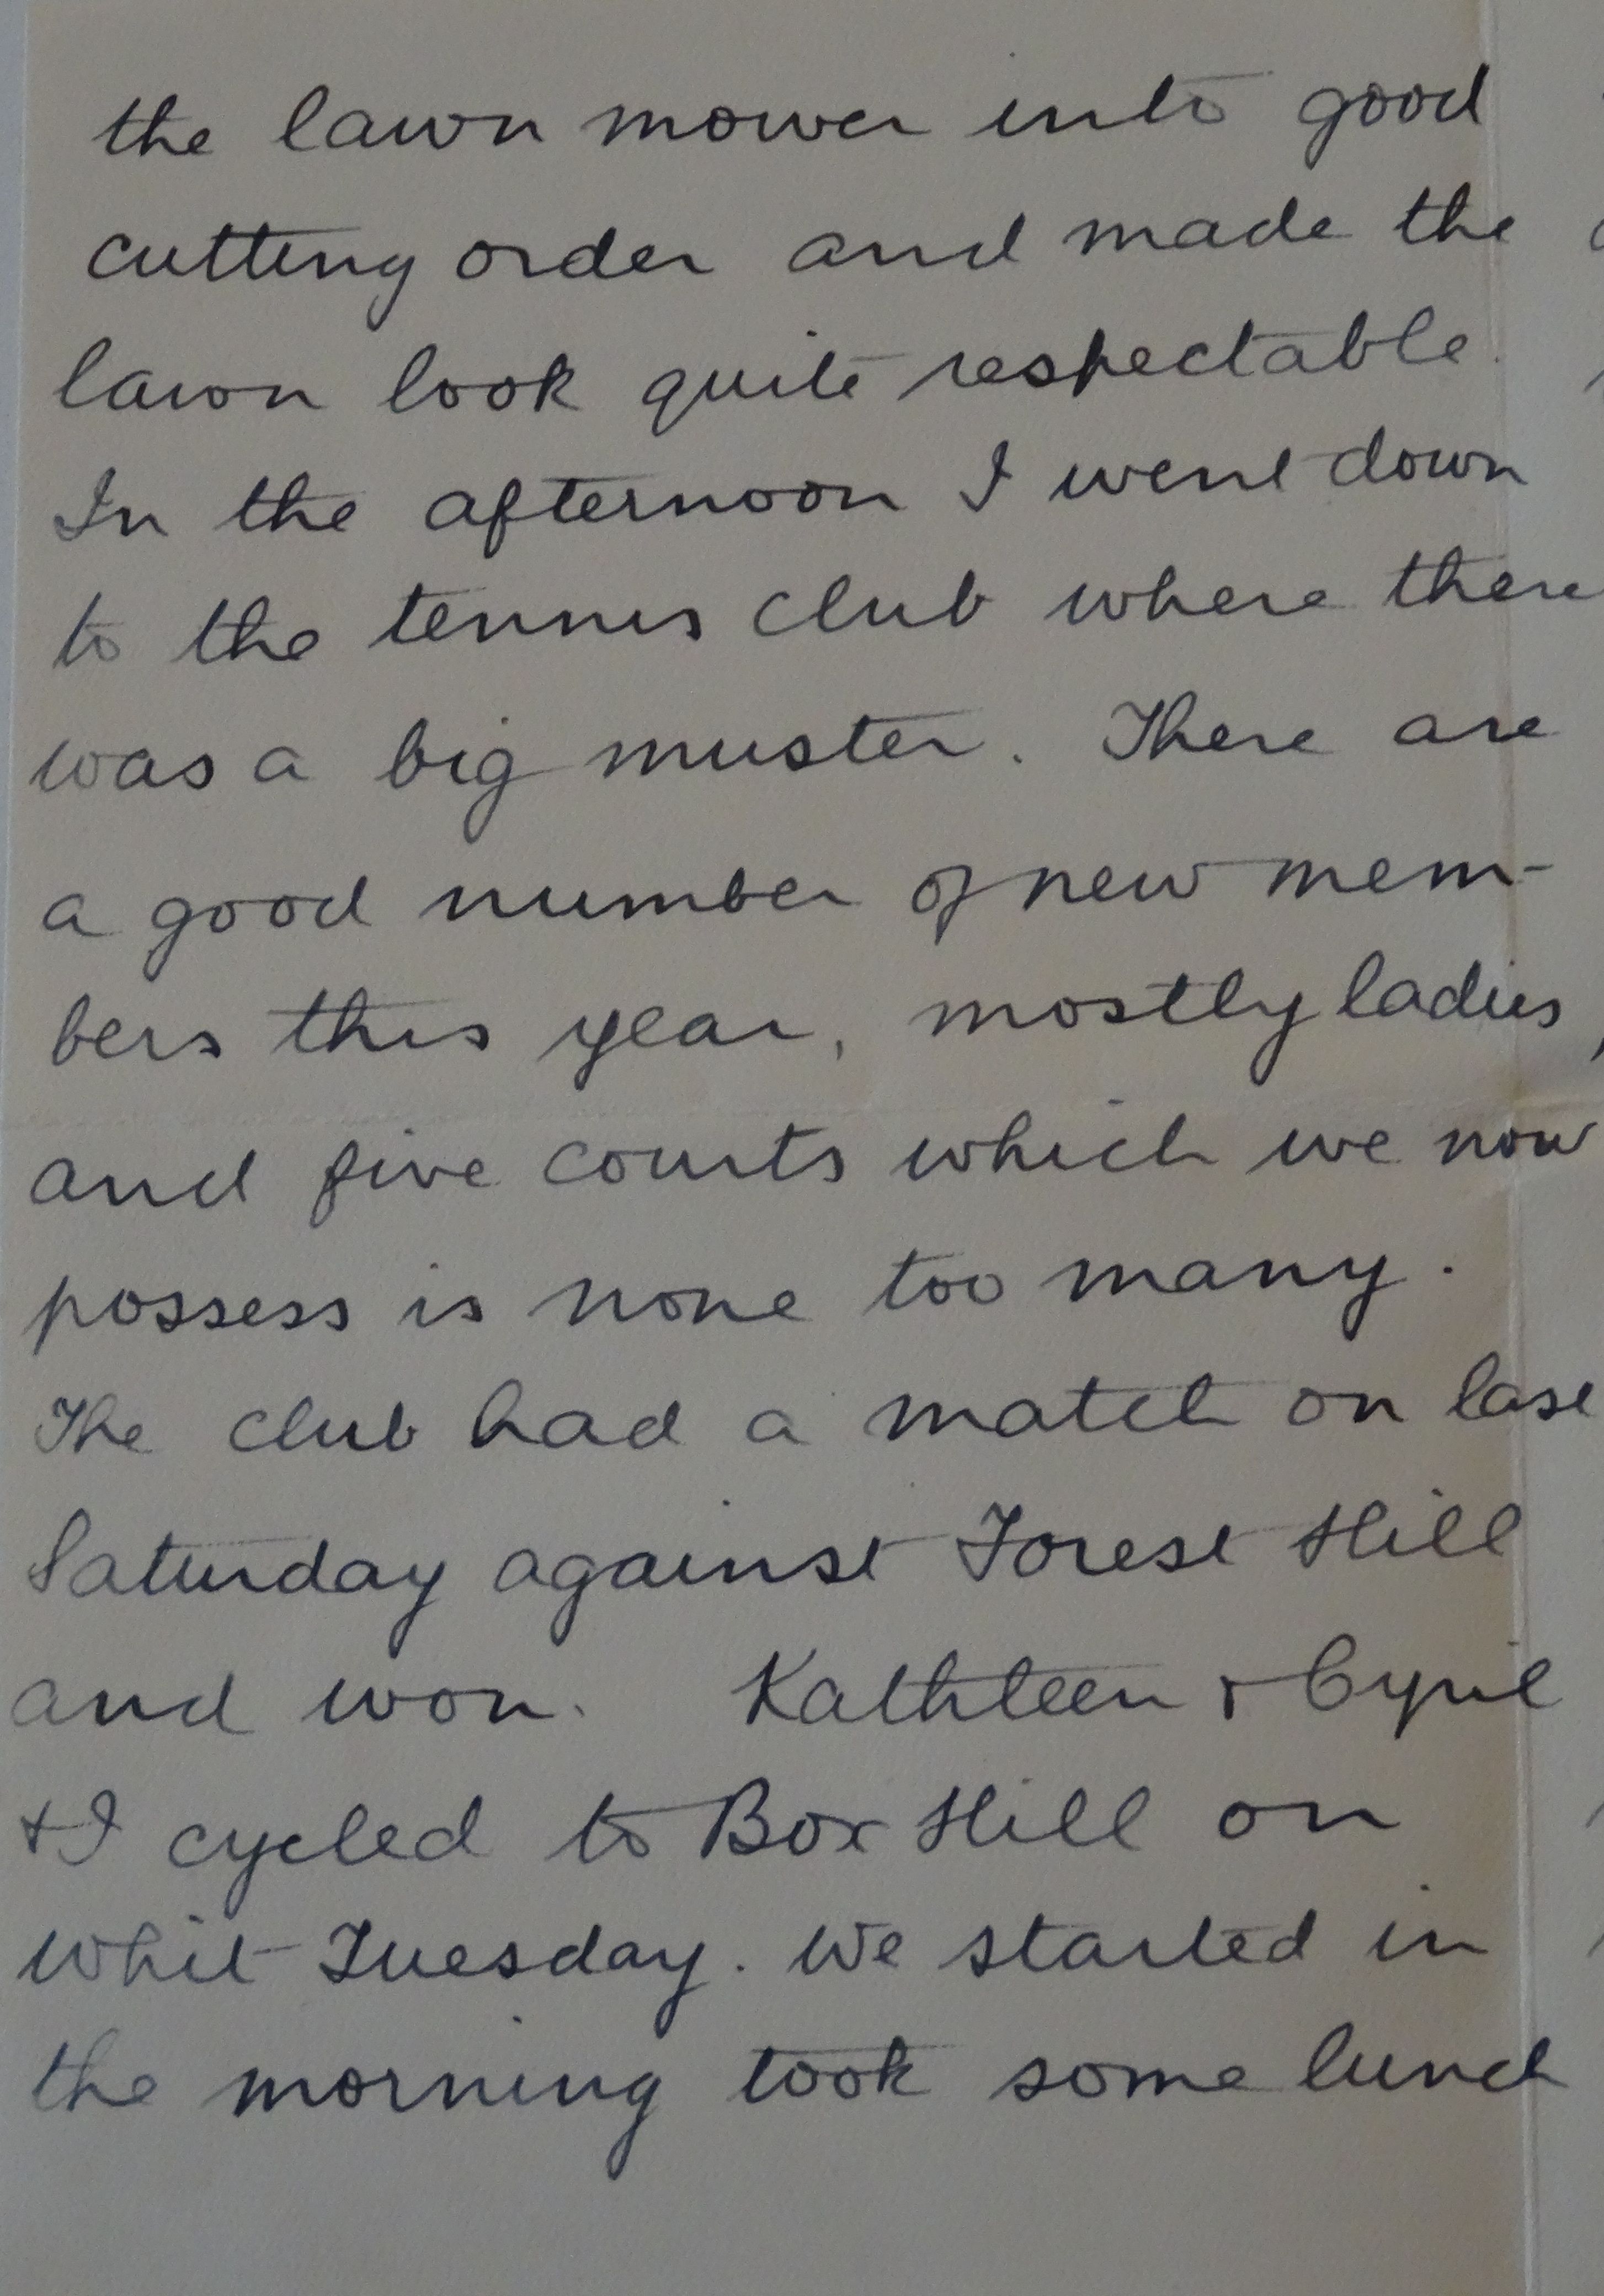 the lawn mower into good
cutting order and made the
lawn look quite respectable.
In the afternoon I went down
to the tennis club where there
was a big muster. There are
a good number of new mem-
bers this year, mostly ladies,
and five courts which we now
possess is none too many.
The club had a match on last
Saturday against Forest Hill
and won. Kathleen & Cyril
& I cycled to Box Hill on
Whit Tuesday. We started in
the morning took some lunch